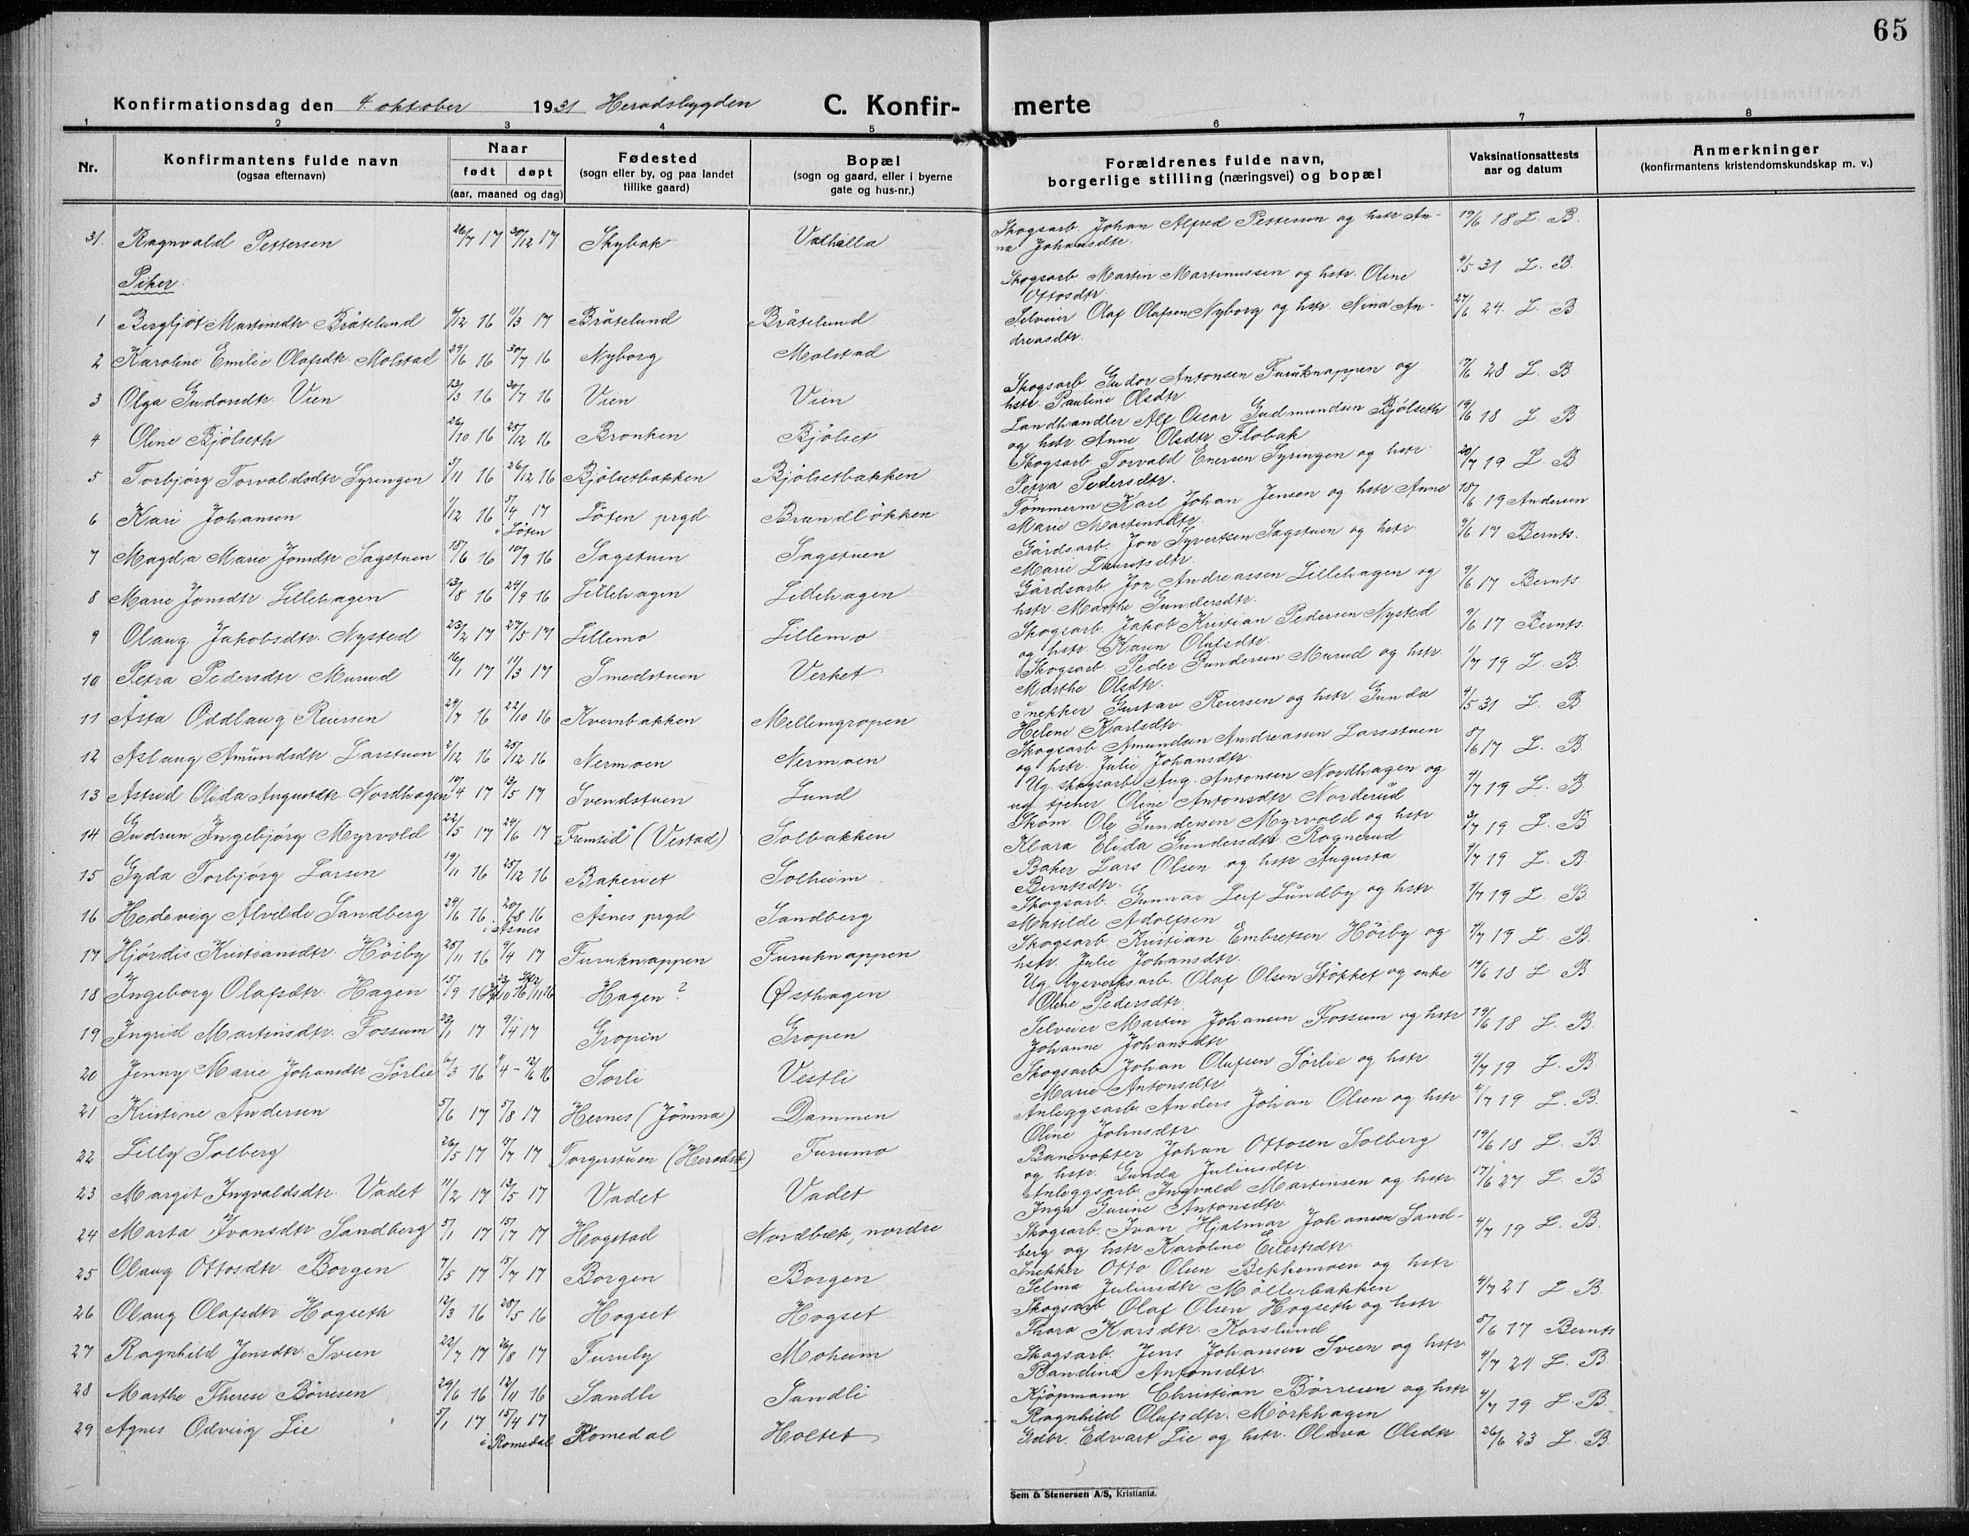 65
Konfirmationsdag den 4. oktober 1931 Heradsbygden C. Konfir- merte
1 2 3 4 5 6 7 8
Nr.
Konfirmantens fulde navn
(ogsaa efternavn)
Naar
født døpt
(aar, maaned og dag)
Fødested
(sogn eller by, og paa landet
tillike gaard)
Bopæl
(sogn og gaard, eller i byerne
gate og hus-nr.)
Forældrenes fulde navn,
borgerlige stilling (næringsvei) og bopæl
Vaksinationsattests
aar og datum
Anmerkninger
(konfirmantens kristendomskundskap m. v.)
31. Ragnvald Pettersen 26/7 17 30/12 17 Skybak Valhalla
Piker.
1 Bergljot Martinsdtr. Bråtelund 4/12 16 11/3 17 Bråtelund Bråtelund
2 Karoline Emilie Olafsdtr. Molstad 29/6 16 30/7 16 Nyborg Molstad
3 Olga Gudorsdtr. Vien 23/3 16 30/7 16 Vien Vien
4 Oline Bjølseth 26/10 16 25/12 16 Bronken Bjølset
5 Torbjørg Torvaldsdtr Syringen 5/11 16 26/12 16 Bjølsetbakken Bjølsetbakken
6 Kari Johansen 1/12 16 5/4 17 i Løten Løten prgd. Brundløkken
7 Magda Marie Jonsdtr Sagstuen 18/6 16 10/9 16 Sagstuen Sagstuen
8 Marie Jonsdtr. Lillehagen 13/8 16 24/9 16 Lillehagen Lillehagen
9 Olaug Jakobsdtr. Nysted 23/2 17 27/5 17 Lillemo Lillemo
10 Petra Pedersdtr Murud 16/1 17 11/3 17 Smedstuen Verket
11 Åsta Oddlaug Reiersen 29/7 16 22/10 16 Kvernbakken Mellemgropen
12 Aslaug Amundsdtr Larsstuen 2/12 16 25/12 16 Nermoen Nermoen
13 Astrid Olida Augustdtr. Nordhagen 10/4 17 13/5 17 Svendstuen Lund
14 Gudrun Ingebjørg Myrvold 22/5 17 24/6 17 Fremtid" (Vestad) Solbakken
15 Gyda Torbjørg Larsen 19/11 16 25/12 16 Bakeriet Solheim
16 Hedevig Alvilde Sandberg 24/6 16 20/8 16 i Åsnes Åsnes prgd Sandberg
17 Hjørdis Kristiansdtr. Høiby 25/11 16 9/4 17 Furuknappen Furuknappen
18 Ingeborg Olafsdtr. Hagen 15/9 16 Hagen? Østhagen
19 Ingrid Martinsdtr. Fossum 23/1 17 9/4 17 Gropen Gropen
20 Jenny Marie Johansdtr Sørlie 6/3 16 Sorli Vestli
21 Kristine Andersen 5/6 17 5/8 17 Hernes (Jømna) Dammen
22 Lilly Solberg 26/5 17 15/7 17 Torgerstuen (Heradsb.) Furumo
23 Margit Ingvaldsdtr. Vadet 11/2 17 13/5 17 Vadet Vadet
24 Marta Ivansdtr Sandberg 5/1 17 15/7 17 Hogstad Nordbæk, nordre
25 Olaug Ottosdtr Borgen 7/5 17 15/7 17 Borgen Borgen
26 Olaug Olafsdtr Hogseth 12/3 16 28/5 16 Hogset Hogset
27 Ragnhild Jensdtr. Sveen 22/7 17 26/8 17 Furuly Moheim
28 Marthe Therese Børresen 29/6 16 12/11 16 Sandli Sandli
29 Agnes Odveig Lie 5/1 17 15/4 17 i Romedal Romedal Holset
Skogsarb. Johan Alfred Pettersen og hstr An- 19/6 18 L. B.
na Johansdtr.
Skogsarb Martin Martinussen og hstr. Oline 4/5 31 L. B.
Ottosdtr.
Selveier Olaf Olafsen Nyborg og hstr Nina An- 27/6 24. L. B
dreasdtr.
Skogsarb. Gudor Antonsen Furuknappen og 17/6 28 L. B
hstr. Pauline Olsdtr.
Landhandler Alf Oscar Gudmundsen Bjølseth 19/6 18 L. B
og hstr Anne Olsdtr Flobak
Skogsarb. Torvald Enersen Syringen og hstr. 20/7 19 L. B
Petra Pedersdtr.
Tømmerm Karl Johan Jensen og hstr Anne 18/6 19 Andersen
Marie Martinsdtr.
Gårdsarb. Jon Syvertsen Sagstuen og hstr. 9/6 17 Bernts.
Marie Lauritsdtr.
Gårdsarb. Jon Andreassen Lillehagen og 9/6 17 Bernts
hstr. Marthe Gundersdtr.
Skogsarb. Jakob Kristian Pedersen Nysted 9/6 17 Bernts.
og hstr. Karen Olufsdtr.
Skogsarb Peder Gundersen Murud og hstr. 1/7 19 L. B.
Marthe Olsdtr.
Snekker Gustav Reiersen og hstr Gunda 4/5 31 L. B
Helene Karlsdtr.
Skogsarb Amundsen Andreassen Larsstuen 5/6 17 L. B.
og hstr. Julie Johansdtr.
Ug. skogsarb. Aug. Antonsen Nordhagen og 4/7 19 L. B.
ug. tjener Oline Antonsdtr. Norderud
Skom. Ole Gundersen Myrvold og hstr 3/7 19 L. B.
Klara Elida Gundersdtr Ragnerud
Baker Lars Olsen og hstr Augusta 3/7 19 L. B.
Berntsdtr.
Skogsarb. Gunnar Leif Lundby og hstr. 7/7 19 L. B.
Matilde Adolfsen
Skogsarb. Kristian Embretsen Høiby og 4/7 19 L. B.
hstr. Julie Johansdtr.
Ug. lysverksarb. Olaf Olsen Støkket og enke 19/6 18 L. B
Oline Pedersdtr.
Selveier Martin Johansen Fossum og hstr 19/6 18 L. B.
Johanne Johansdtr
Skogsarb Johan Olufsen Sørlie og hstr. 4/7 19 L. B.
Marie Antonsdtr.
Anleggsarb. Anders Johan Olsen og hstr. 4/7 19 L. B.
Oline Johnsdtr.
Banevokter Johan Ottosen Solberg 19/6 18 L. B.
og hstr. Gunda Juliusdtr.
Anleggsarb. Ingvald Martinsen og hstr. 17/6 27 L. B
Inga Gurine Antonsdtr.
Skogsarb. Ivan Hjalmar Johansen Sand- 4/7 19 L. B.
berg og hstr Karoline Eilertsdtr.
Snekker Otto Olsen Bekkemoen og hstr
Selma Juliusdtr Møllerbakken 4/7 21 L. B.
Skogsarb Olaf Olsen Hogseth og hstr
Thora Karsdtr. Korslund 5/6 17 Bernts
Skogsarb. Jens Johansen Sveen og hstr
Randina Antonsdtr. 4/7 21 L. B.
Kjøpmann Christian Børresen og hstr
Ragnhild Olufsdtr. Mørkhagen 4/7 19 L. B.
Gdbr. Edvart Lie og hstr. Olava Olsdtr 26/6 23 L. B.
Sem & Stenersen A/S, Kristiania.